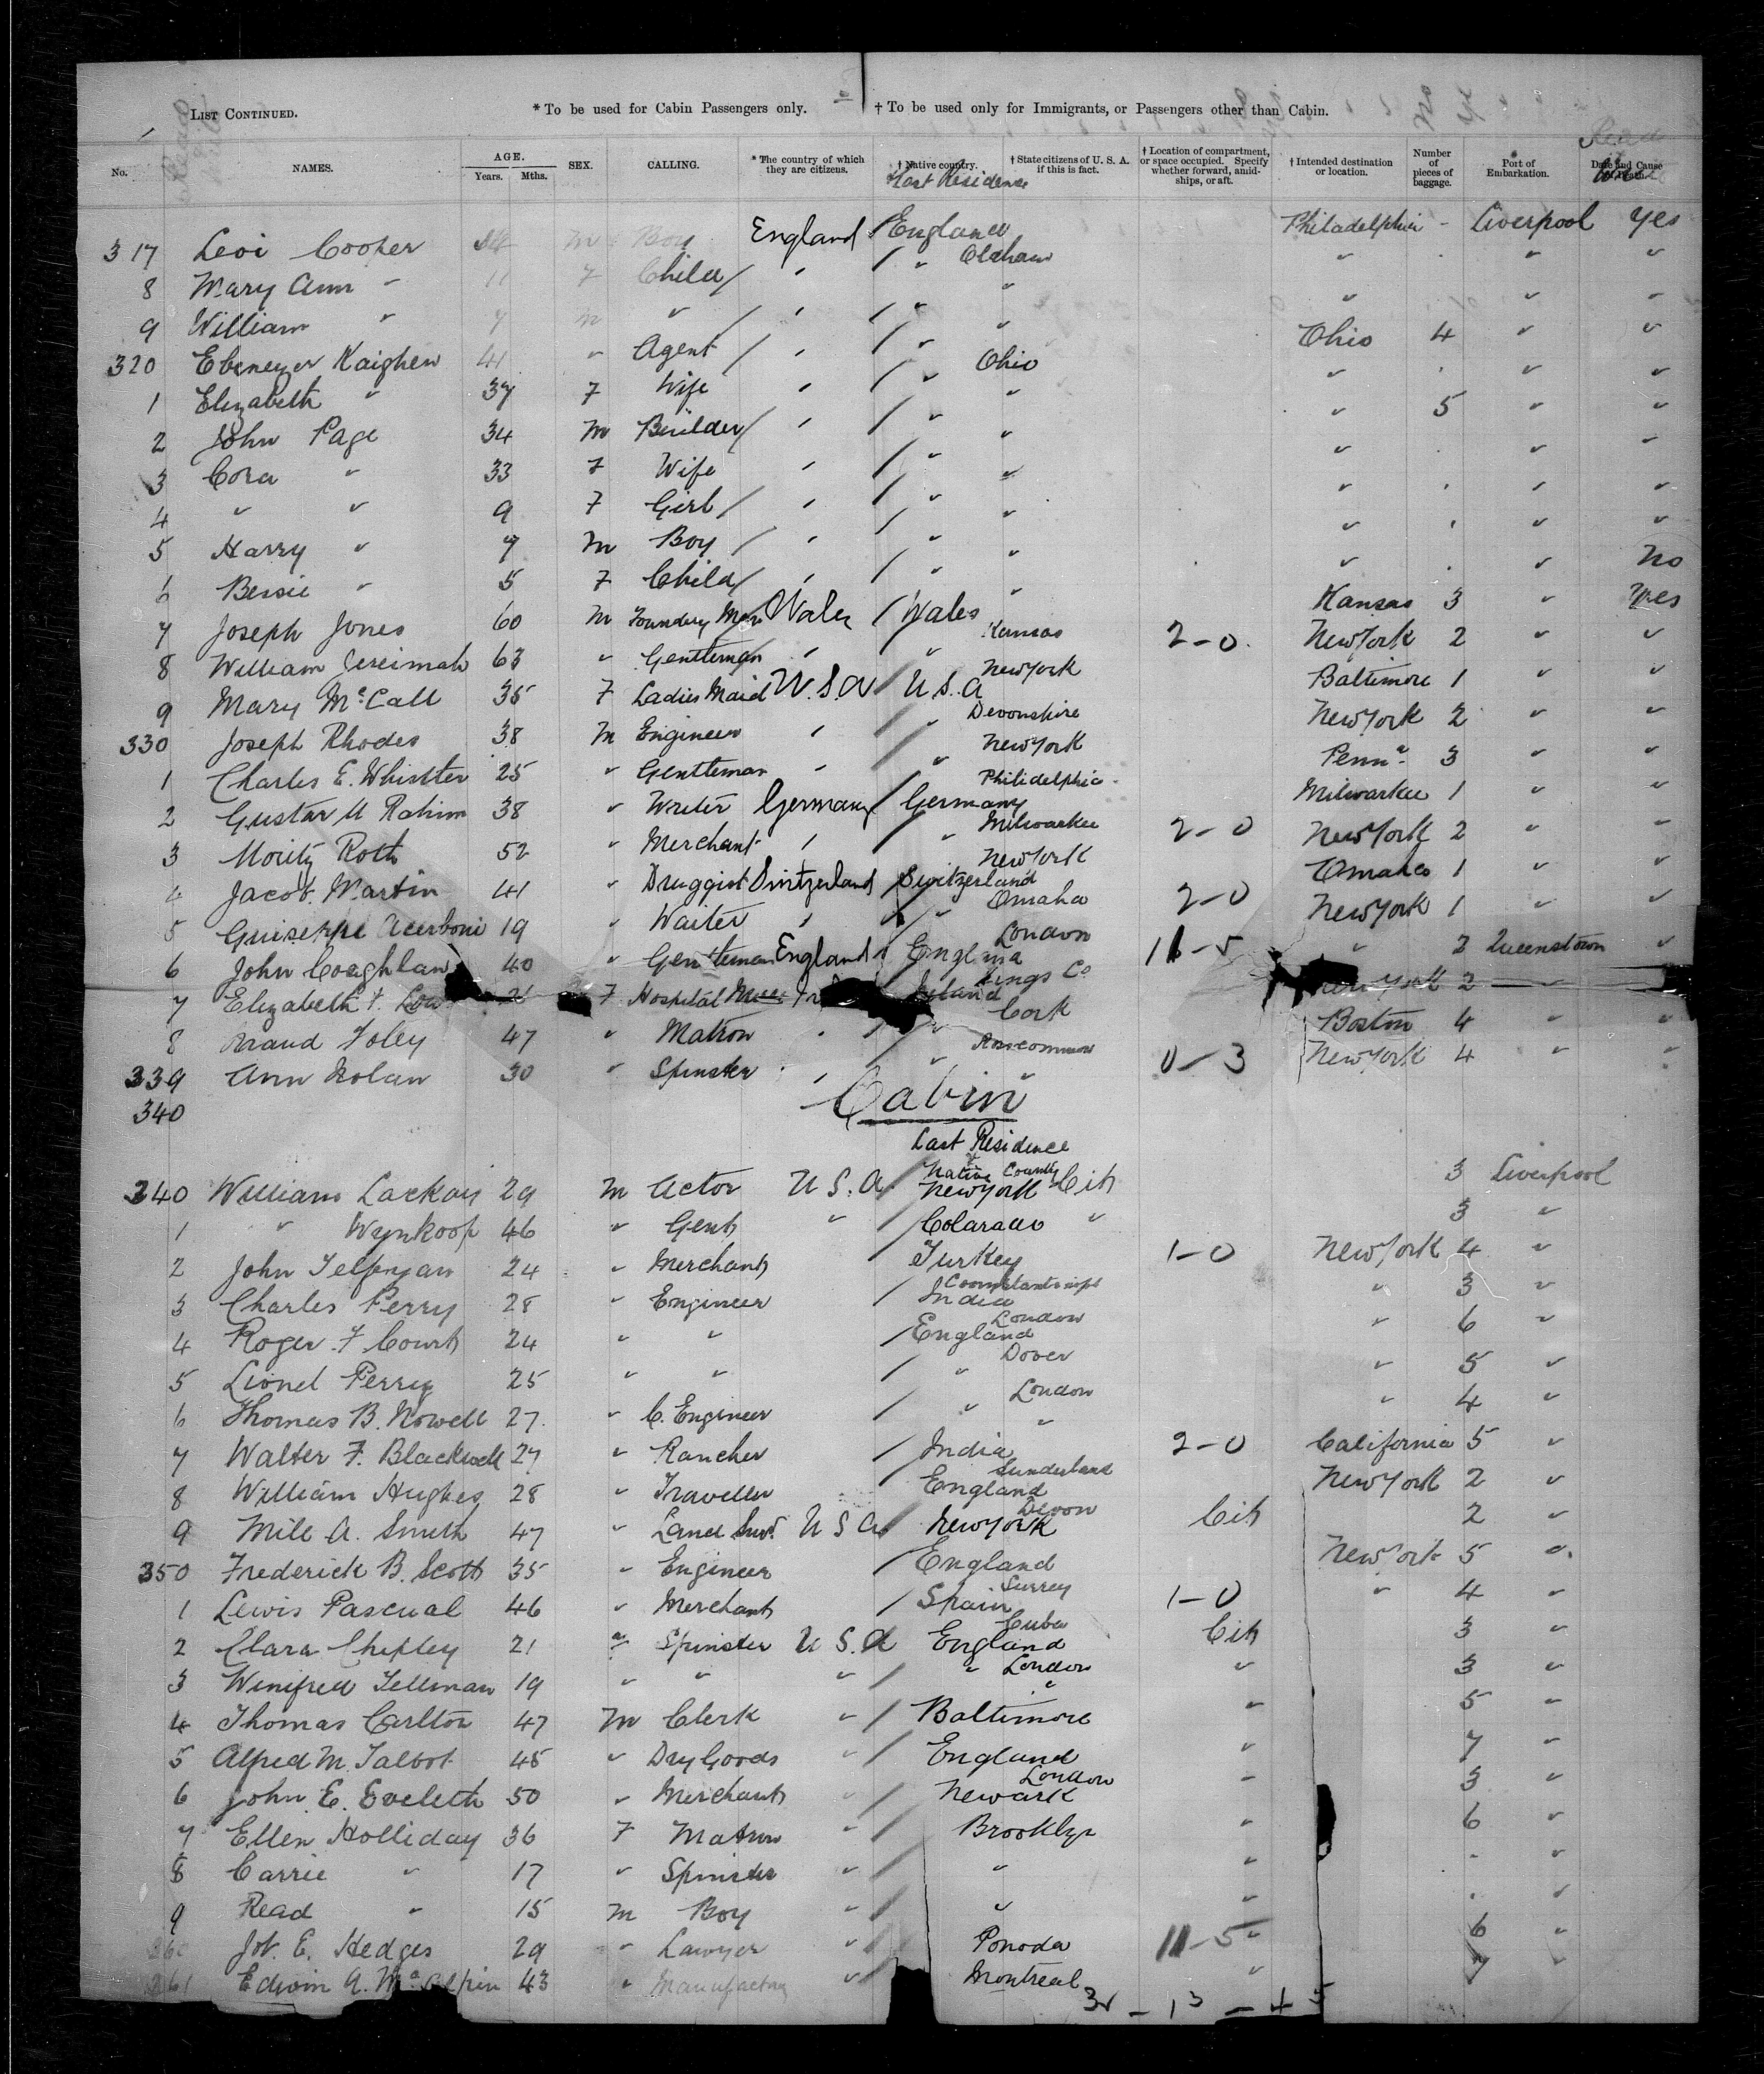 LIST CONTINUED. * To be used for Cabin Passengers only. † To be used only for Immigrants, or Passengers other than Cabin.
No. NAMES. AGE. Years. Mths. SEX. CALLING. * The country of which they are citizens. † Native country. † State citizens of U. S. A. if this is fact. † Location of compartment, or space occupied. Specify whether forward, amidships, or aft. † Intended destination or location. Number of pieces of baggage. Port of Embarkation. Date and Cause
Last Residence
317 Levi Cooper m Boy England / England Oldham Philadelphia - Liverpool yes
8 Mary Ann " 11 F Child / " / " " " " "
9 William " m " / " / " " " " "
320 Ebenezer Kaighen 41 " Agent / " / " Ohio Ohio 4 " "
1 Elizabeth " 37 F Wife " / " " " " "
2 John Page 34 m Builder / " / " " " 5 " "
3 Cora " 33 F Wife " / " " " " "
4 " " 9 F Girl / " / " " " " "
5 Harry " 7 m Boy / " / " " " " "
6 Bessie " 5 F Child / " / " " " " No
7 Joseph Jones 60 m Foundry Man Wales / Wales Kansas Kansas 3 " yes
8 William Jereimah 63 " Gentleman " " New York 2-0 New York 2 " "
9 Mary McCall 35 F Ladies Maid U.S.A / U.S.A Devonshire Baltimore 1 " "
330 Joseph Rhodes 38 m Engineer " / " New York New York 2 " "
1 Charles E. Whistter 25 " Gentleman " / " Philidelphia Penna 3 " "
2 Gustav U Rahim 38 " Waiter Germany / Germany Milwarkee Milwarkee 1 " "
3 Moritz Roth 52 " Merchant " / " New York 2-0 New York 2 " "
4 Jacob Martin 41 " Druggist Switzerland / Switzerland Omaha Omaha 1 " "
5 Guiseppe Acerboni 19 " Waiter " / " London 2-0 New York 1 " "
6 John Coaghlan 40 " Gentleman England / England Kings Co 11-5 " 2 Queenstown "
7 Elizabeth F. F Hospital Ireland Cork New York 2 "
8 Maud Foley 47 " Matron " / " Roscommon Boston 4 " "
339 Ann Nolan 30 " Spinster " / " " 0-3 New York 4 " "
340
Cabin
Last Residence
Native County
340 William Lackay 29 m Actor U.S.A / New York Cit 3 Liverpool
1 " Wynkoop 46 " Gent " / Colarado " 3 "
2 John Telfenjan 24 " Merchant Turkey Constantinopl 1-0 New York 4 "
3 Charles Perry 28 " Engineer / India London " 3 "
4 Roger F Court 24 " " / England Dover " 6 "
5 Lionel Perry 25 " " / " London " 5 "
6 Thomas B. Nowell 27 " C. Engineer / " " " 4 "
7 Walter F. Blackwell 27 " Rancher / India Sunderland 2-0 California 5 "
8 William Hughes 28 " Traveller England Devon New York 2 "
9 Mile A. Smith 47 " Land Surv. U S A / New York Cit 2 "
350 Frederick B. Scott 35 " Engineer / England Surrey New York 5 "
1 Lewis Pascual 46 " Merchant / Spain Cuba 1-0 " 4 "
2 Clara Chepley 21 " Spinster U.S.A England London Cit 3 "
3 Winifred Tellman 19 " " " / " " " 3 "
4 Thomas Carlton 47 m Clerk " / Baltimore " 5 "
5 Alfred M. Talbot 45 " Dry Goods " / England London " 7 "
6 John E. Eveleth 50 " Merchant " / Newark " 3 "
7 Ellen Holliday 36 F Matron " / Brooklyn " 6 "
8 Carrie " 17 " Spinster " / " " "
9 Read " 15 m Boy " / " " "
Job. E. Hedges 29 " Lawyer " / 11-5 " 6 "
361 Edwin A. McAlpin 43 " Manufactury " Montreal " 7 "